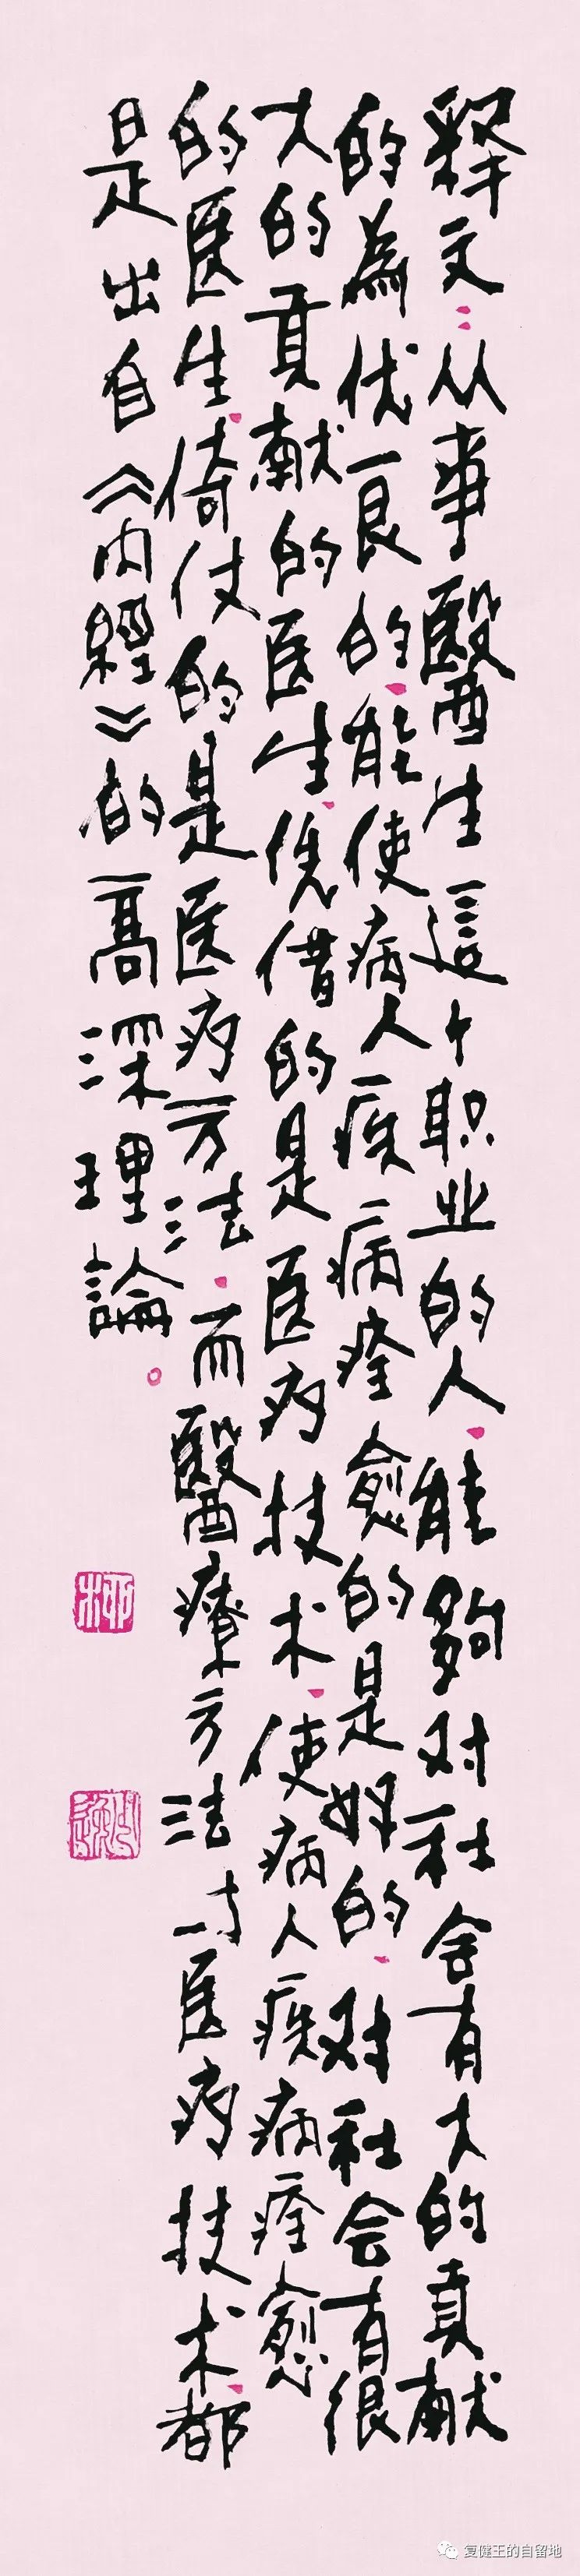 释文：从事醫生這个职业的人，能夠对社会有大的貢献
的為优良的，能使病人疾病痊愈的是好的，对社会有很
大的貢献的医生，凭借的是医疗技术，使病人疾病痊愈
的医生，倚仗的是医疗方法，而醫療方法与医疗技术，都
是出自《内經》的高深理論。
复健王的自留地